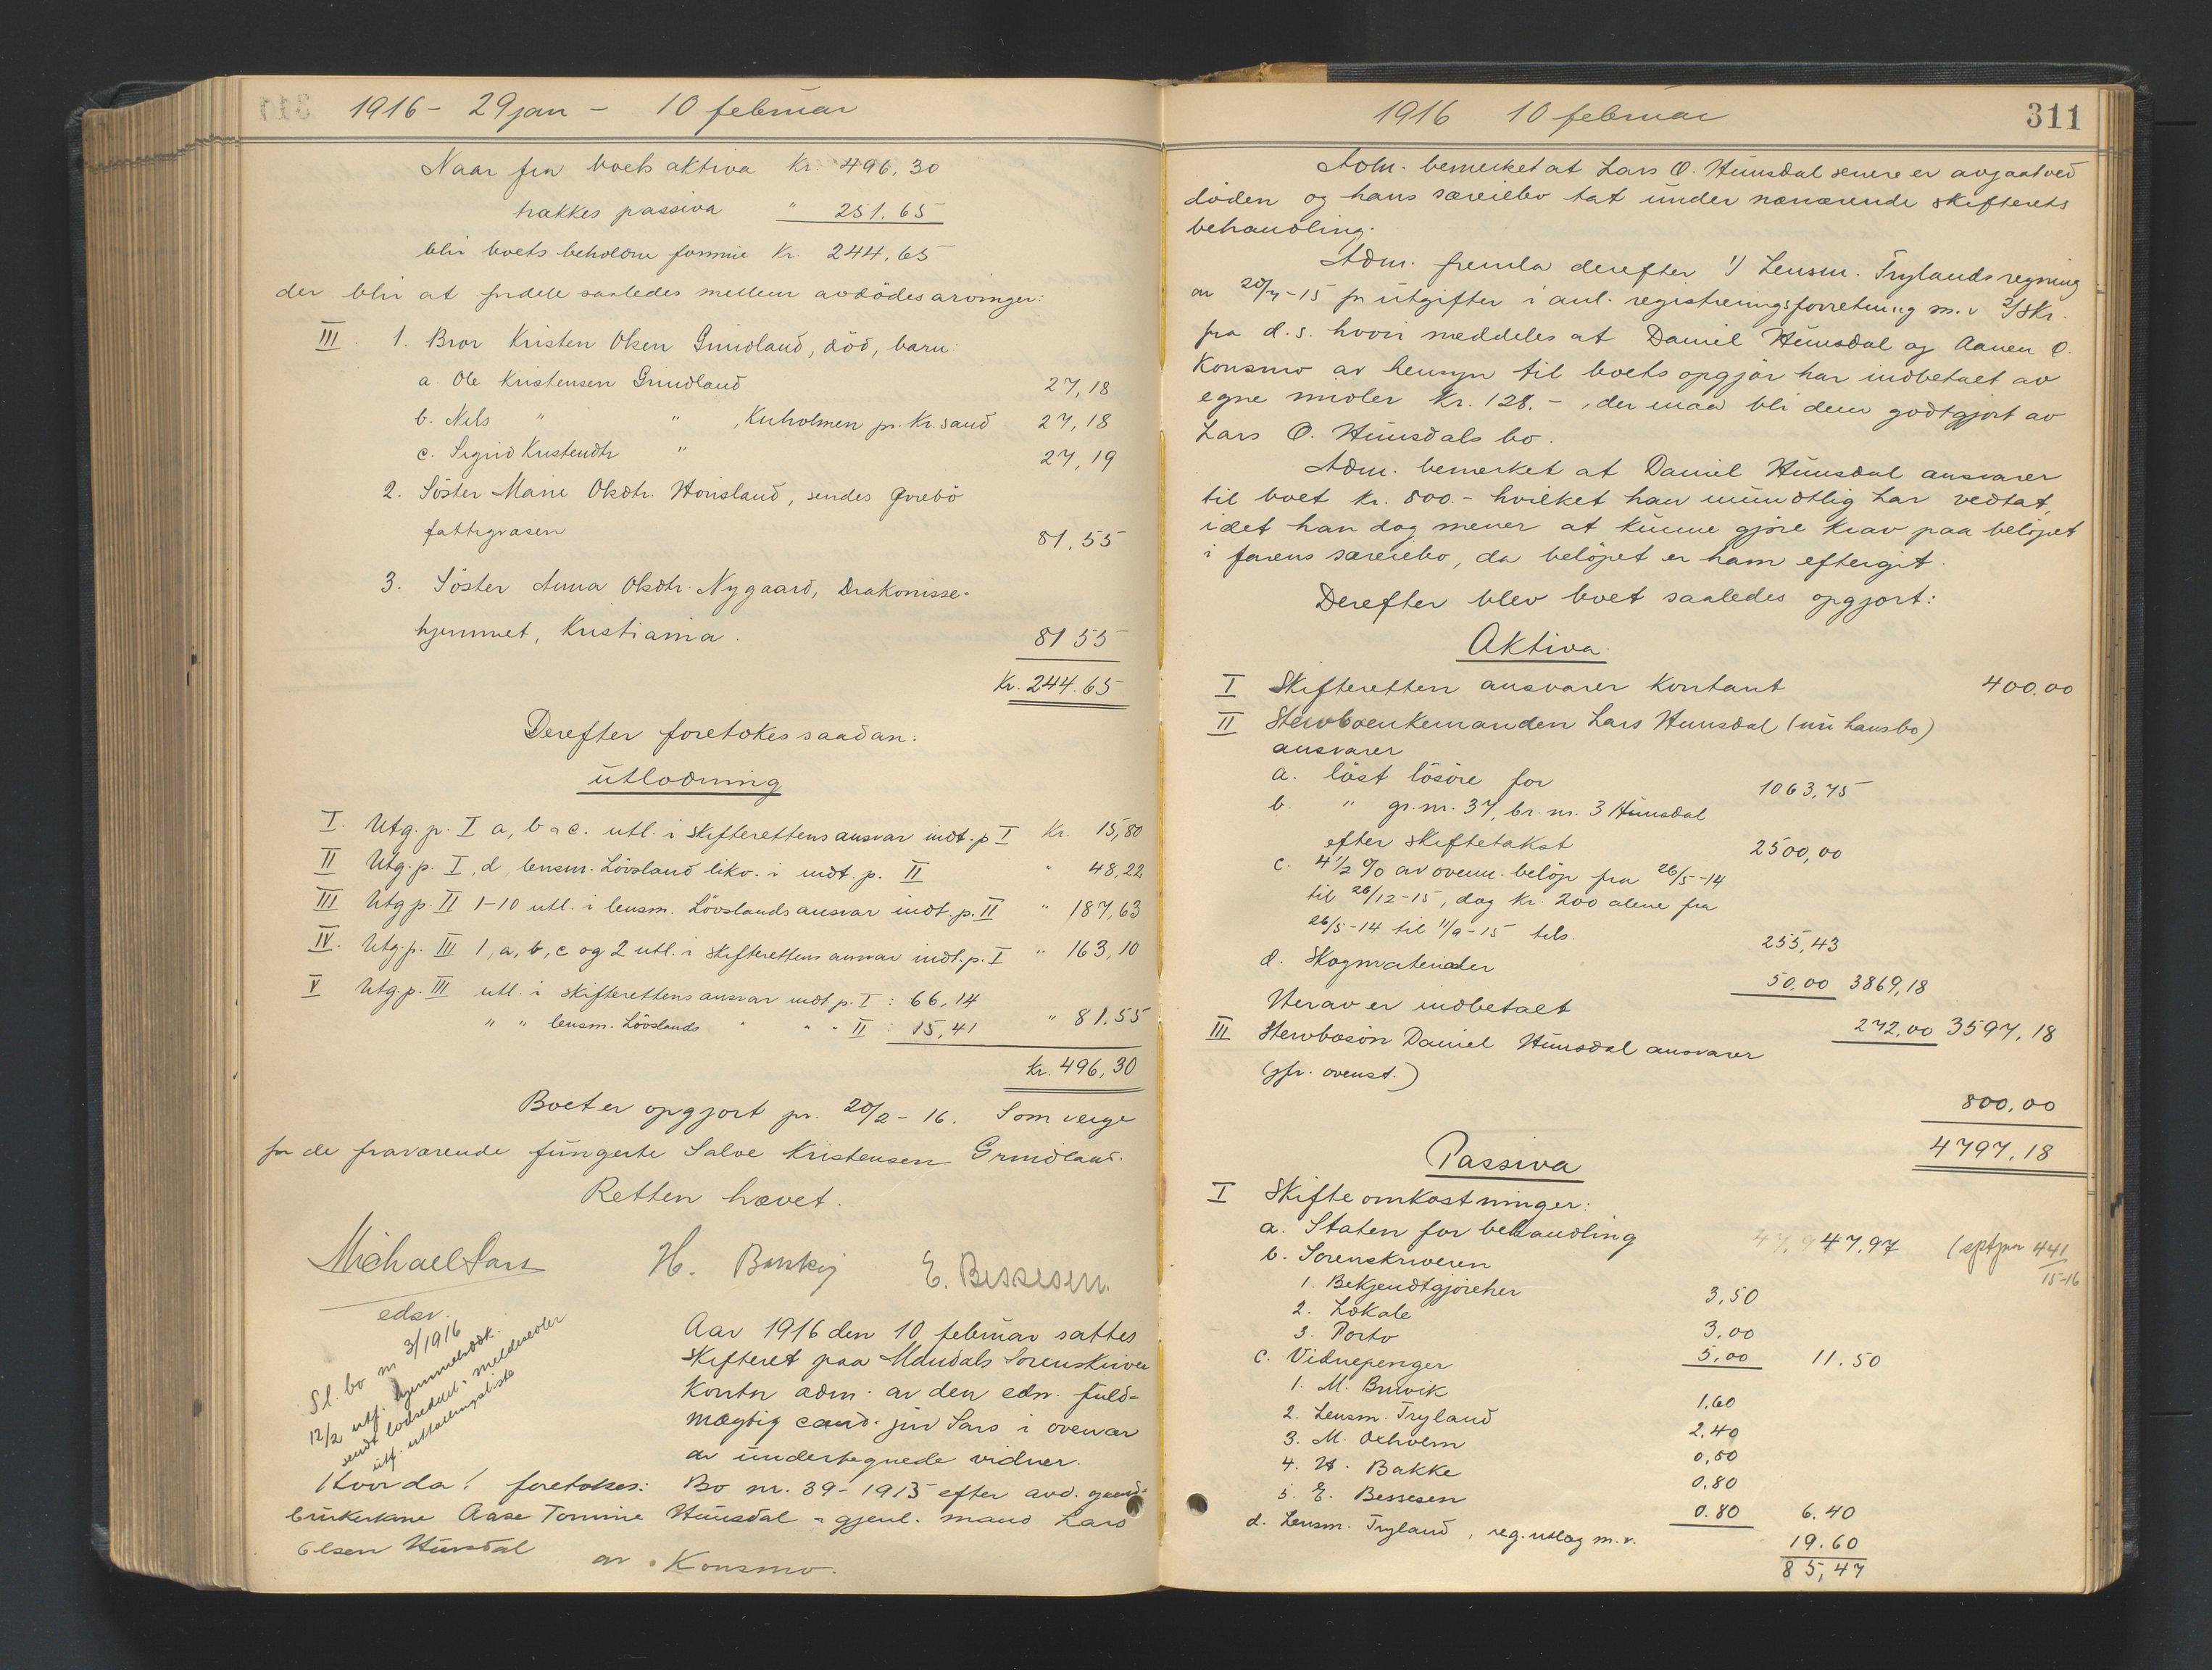 1916 - 29 jan - 10 februar
Naar fra boets aktiva Kr. 496,30
trækkes passiva " 251,65
blir boets beholdne formue Kr. 244,65
der blir at fordele saaledes mellem avdödes arvinger:
III. 1. Bror Kristen Olsen Grindland, död, barn:
a. Ole Kristensen Grindland 27,18
b. Nils " " , Kuholmen pr. Kr.sand 27,18
c. Sigrid Kristendtr " 27,19
2. Söster Marie Olsdtr. Honsland, sendes Övrebö
fattigvæsen 81,55
3. Söster Anna Olsdtr. Nygaard, Diakonisse-
hjemmet, Kristiania. 81 55
Kr. 244.65
Derefter foretokes saadan:
Utlodning
I. Utg. p. I a, b & c. utl. i skifterettens ansvar indt. p I Kr. 15,80
II Utg. p. I, d, lensm. Lövsland likv. i indt. p. II " 48,22
III Utg p. II 1-10 utl. i lensm. Lövslands ansvar indt. p. II " 187,63
IV. Utg. p. III 1, a, b, c og 2 utl. i skifterettens ansvar indt. p. I " 163,10
V Utg. p. III utl. i skifterettens ansvar indt. p. I : 66,14
" " lensm. Lövslands " " " II : 15,41 " 81.55
Kr. 496,30
Boet er opgjort pr. 20/2 - 16. Som verge
for de fraværende fungerte Salve Kristensen Grindland.
Retten hævet.
Michael Sars H. E. Bessesen.
edsv.
Sl. bo nr 3/1916
12/2 utf. hjemmelsdok.
sendt lodseddel & meldesedler
utf. uttællingsliste
Aar 1916 den 10 februar sattes
skifteret paa Mandals Sorenskriver
Kontor adm. av den edsv. fuld-
mægtig cand. jur Sars i overvær
av undertegnede vidner.
Hvorda! foretokes: Bo nr. 39 - 1915 efter avd. gaard-
brukerkone Aase Tomine Hunsdal & gjenl. mand Lars
Olsen Hunsdal av Konsmo.
1916 10 februar
311
Adm. bemerket at Lars O. Hunsdal senere er avgaat ved
döden og hans særeiebo tat under nærværende skifterets
behandling.
Adm. fremla derefter 1/ Lensm. Trylands regning
av 20/4-15 for utgifter i anl. registreringsforretning m.v 2/ Skr.
fra d.s. hvori meddeles at Daniel Hunsdal og Aanen O.
Konsmo av hensyn til boets opgjör har indbetalt av
egne midler Kr. 128.-, der maa bli dem godtgjort av
Lars O. Hunsdals bo.
Adm. bemerket at Daniel Hunsdal ansvarer
til boet Kr. 800.- hvilket han mundtlig har vedtat,
idet han dog mener at kunne gjöre krav paa belöpet
i farens særeiebo, da belöpet er ham eftergit.
Derefter blev boet saaledes opgjort:
Aktiva.
I Skifteretten ansvarer kontant 400.00
II Stervboenkemanden Lars Hunsdal (nu hans bo)
ansvarer
a. löst lösöre for 1063,75
b. " gr. nr. 37, br. nr. 3 Hunsdal
efter skiftetakst 2500,00
c. 4 1/2 % av ovenn. belöp fra 26/5-14
til 26/12-15, dog Kr. 200 alene fra
26/5-14 til 11/9-15 tils. 255,43
d. Skogmaterialer 50.00 3869,18
Herav er indbetalt 272,00 3597,18
III Stervbosön Daniel Hunsdal ansvarer
(jfr. ovenst.) 800.00
4797,18
Passiva
I Skifteomkostninger:
a. Staten for behandling 47,97 (sptpr 441
15-16
b. Sorenskriveren
1. Bekjendtgjörelser 3,50
2. Lokale 3.00
3. Porto 5,00 11.50
c. Vidnepenger
1. M. Bruvik 1.60
2. Lensm. Tryland 2.40
3. M. Oxholm 0,80
4. H. Bakke 0.80
5. E. Bessesen 0.80 6.40
d. Lensm. Tryland, reg.utlæg m.v. 19.60
85,47